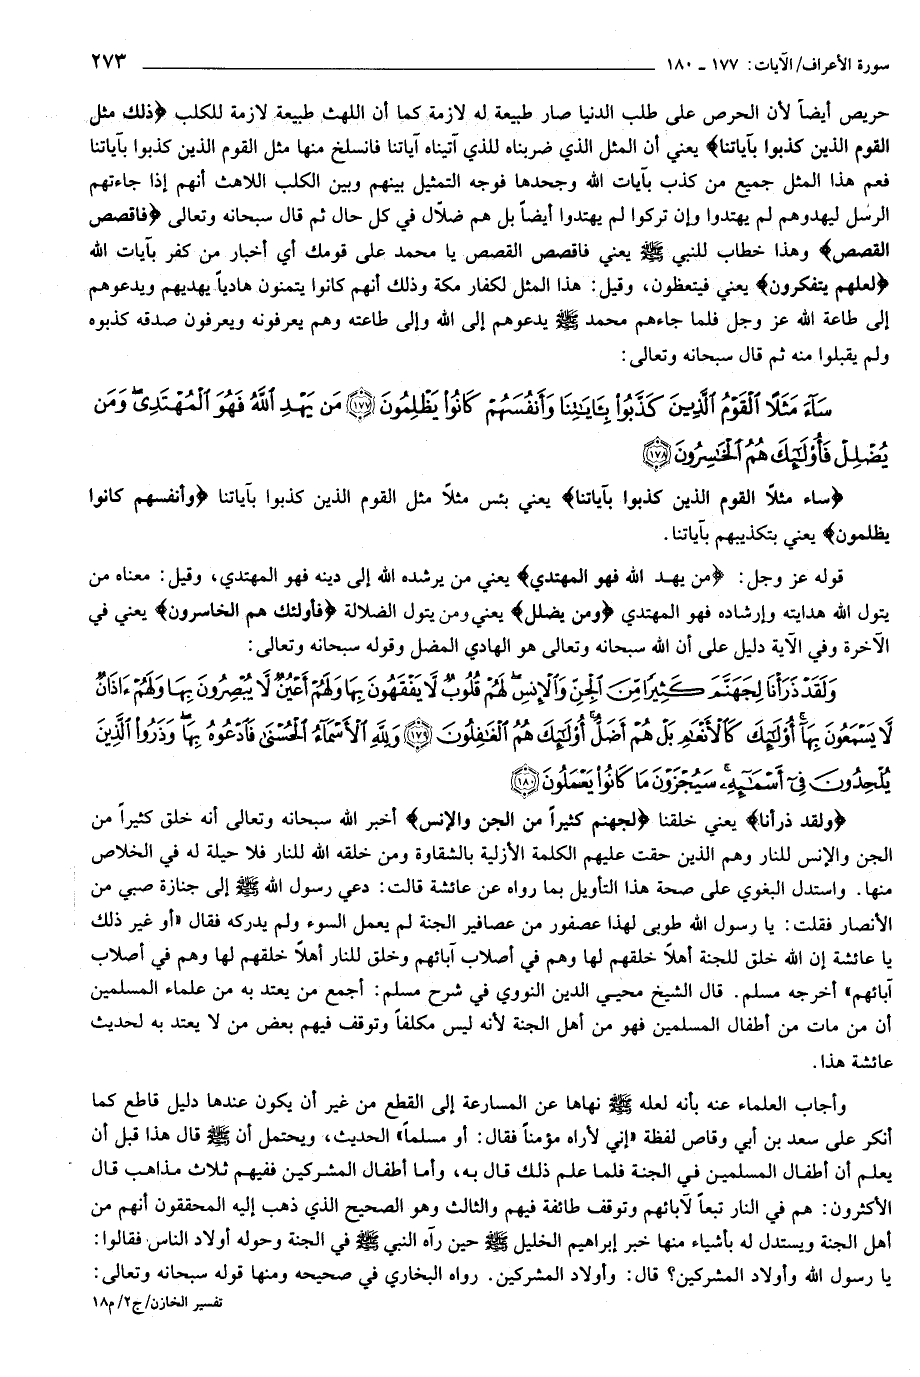 سورة الأعراف/الآيات: ١٧٧ ـ ١٨٠ ٢٧٣
حريص أيضاً لأن الحرص على طلب الدنيا صار طبيعة له لازمة كما أن اللهث طبيعة لازمة للكلب ﴿ذلك مثل
القوم الذين كذبوا بآياتنا﴾ يعني أن المثل الذي ضربناه للذي آتيناه آياتنا فانسلخ منها مثل القوم الذين كذبوا بآياتنا
فعم هذا المثل جميع من كذب بآيات الله وجحدها فوجه التمثيل بينهم وبين الكلب اللاهث أنهم إذا جاءتهم
الرسُل ليهدوهم لم يهتدوا وإن تركوا لم يهتدوا أيضاً بل هم ضلّال في كل حال ثم قال سبحانه وتعالى ﴿فاقصص
القصص﴾ وهذا خطاب للنبي ﷺ يعني فاقصص القصص يا محمد على قومك أي أخبار من كفر بآيات الله
﴿لعلهم يتفكرون﴾ يعني فيتعظون، وقيل: هذا المثل لكفار مكة وذلك أنهم كانوا يتمنون هادياً يهديهم ويدعوهم
إلى طاعة الله عز وجل فلما جاءهم محمد ﷺ يدعوهم إلى الله وإلى طاعته وهم يعرفونه ويعرفون صدقه كذبوه
ولم يقبلوا منه ثم قال سبحانه وتعالى:
سَآءَ مَثَلًا ٱلْقَوْمُ ٱلَّذِينَ كَذَّبُوا۟ بِـَٔايَـٰتِنَا وَأَنفُسَهُمْ كَانُوا۟ يَظْلِمُونَ ﴿١٧٧﴾ مَن يَهْدِ ٱللَّهُ فَهُوَ ٱلْمُهْتَدِى ۖ وَمَن
يُضْلِلْ فَأُو۟لَـٰٓئِكَ هُمُ ٱلْخَـٰسِرُونَ ﴿١٧٨﴾
﴿ساء مثلاً القوم الذين كذبوا بآياتنا﴾ يعني بئس مثلاً مثل القوم الذين كذبوا بآياتنا ﴿وأنفسهم كانوا
يظلمون﴾ يعني بتكذيبهم بآياتنا.
قوله عز وجل: ﴿من يهد الله فهو المهتدي﴾ يعني من يرشده الله إلى دينه فهو المهتدي، وقيل: معناه من
يتول الله هدايته وإرشاده فهو المهتدي ﴿ومن يضلل﴾ يعني ومن يتول الضلالة ﴿فأولئك هم الخاسرون﴾ يعني في
الآخرة وفي الآية دليل على أن الله سبحانه وتعالى هو الهادي المضل وقوله سبحانه وتعالى:
وَلَقَدْ ذَرَأْنَا لِجَهَنَّمَ كَثِيرًا مِّنَ ٱلْجِنِّ وَٱلْإِنسِ ۖ لَهُمْ قُلُوبٌ لَّا يَفْقَهُونَ بِهَا وَلَهُمْ أَعْيُنٌ لَّا يُبْصِرُونَ بِهَا وَلَهُمْ ءَاذَانٌ
لَّا يَسْمَعُونَ بِهَآ ۚ أُو۟لَـٰٓئِكَ كَٱلْأَنْعَـٰمِ بَلْ هُمْ أَضَلُّ ۚ أُو۟لَـٰٓئِكَ هُمُ ٱلْغَـٰفِلُونَ ﴿١٧٩﴾ وَلِلَّهِ ٱلْأَسْمَآءُ ٱلْحُسْنَىٰ فَٱدْعُوهُ بِهَا ۖ وَذَرُوا۟ ٱلَّذِينَ
يُلْحِدُونَ فِىٓ أَسْمَـٰٓئِهِۦ ۚ سَيُجْزَوْنَ مَا كَانُوا۟ يَعْمَلُونَ ﴿١٨٠﴾
﴿ولقد ذرأنا﴾ يعني خلقنا ﴿لجهنم كثيراً من الجن والإنس﴾ أخبر الله سبحانه وتعالى أنه خلق كثيراً من
الجن والإنس للنار وهم الذين حقت عليهم الكلمة الأزلية بالشقاوة ومن خلقه الله للنار فلا حيلة له في الخلاص
منها. واستدل البغوي على صحة هذا التأويل بما رواه عن عائشة قالت: دعي رسول الله ﷺ إلى جنازة صبي من
الأنصار فقلت: يا رسول الله طوبى لهذا عصفور من عصافير الجنة لم يعمل السوء ولم يدركه فقال «أو غير ذلك
يا عائشة إن الله خلق للجنة أهلاً خلقهم لها وهم في أصلاب آبائهم وخلق للنار أهلاً خلقهم لها وهم في أصلاب
آبائهم» أخرجه مسلم. قال الشيخ محيي الدين النووي في شرح مسلم: أجمع من يعتد به من علماء المسلمين
أن من مات من أطفال المسلمين فهو من أهل الجنة لأنه ليس مكلفاً وتوقف فيهم بعض من لا يعتد به لحديث
عائشة هذا.
وأجاب العلماء عنه بأنه لعله ﷺ نهاها عن المسارعة إلى القطع من غير أن يكون عندها دليل قاطع كما
أنكر على سعد بن أبي وقاص لفظة «إني لأراه مؤمناً فقال: أو مسلماً» الحديث، ويحتمل أن ﷺ قال هذا قبل أن
يعلم أن أطفال المسلمين في الجنة فلما علم ذلك قال به، وأما أطفال المشركين ففيهم ثلاث مذاهب قال
الأكثرون: هم في النار تبعاً لآبائهم وتوقف طائفة فيهم والثالث وهو الصحيح الذي ذهب إليه المحققون أنهم من
أهل الجنة ويستدل له بأشياء منها خبر إبراهيم الخليل ﷺ حين رآه النبي ﷺ في الجنة وحوله أولاد الناس فقالوا:
يا رسول الله وأولاد المشركين؟ قال: وأولاد المشركين. رواه البخاري في صحيحه ومنها قوله سبحانه وتعالى:
تفسير الخازن/ج٢/م١٨